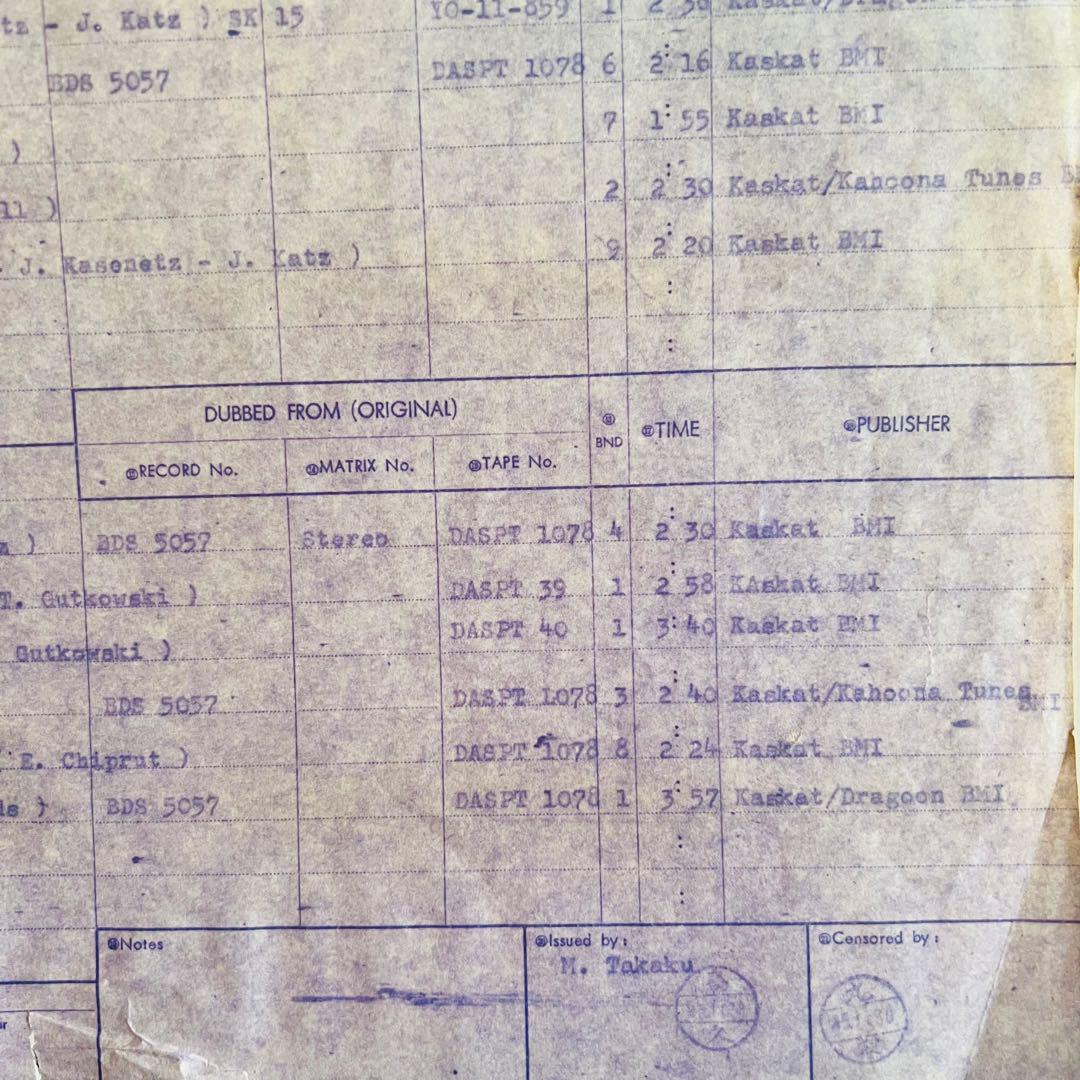 tz - J. Katz ) SK 15 YO-11-859 1 2:30
BDS 5057 DASPT 1078 6 2:16 Kaskat BMI
) 7 1:55 Kaskat BMI
ll ) 2 2:30 Kaskat/Kahoona Tunes B
. J. Kasenetz - J. Katz ) 9 2:20 Kaskat BMI
:
:
DUBBED FROM (ORIGINAL) ⑯ BND ⑰TIME ⑱PUBLISHER
⑬RECORD No. ⑭MATRIX No. ⑮TAPE No.
) BDS 5057 Stereo DASPT 1078 4 2:30 Kaskat BMI
T. Gutkowski ) - DASPT 39 1 2:58 KAskat BMI
Gutkowski ) DASPT 40 1 3:40 Kaskat BMI
BDS 5057 DASPT 1078 3 2:40 Kaskat/Kahoona Tunes BMI
( E. Chiprut ) DASPT 1078 8 2:24 Kaskat BMI
ls ) BDS 5057 DASPT 1078 1 3:57 Kaskat/Dragoon BMI
:
:
Notes Issued by: Censored by:
M. Takaku